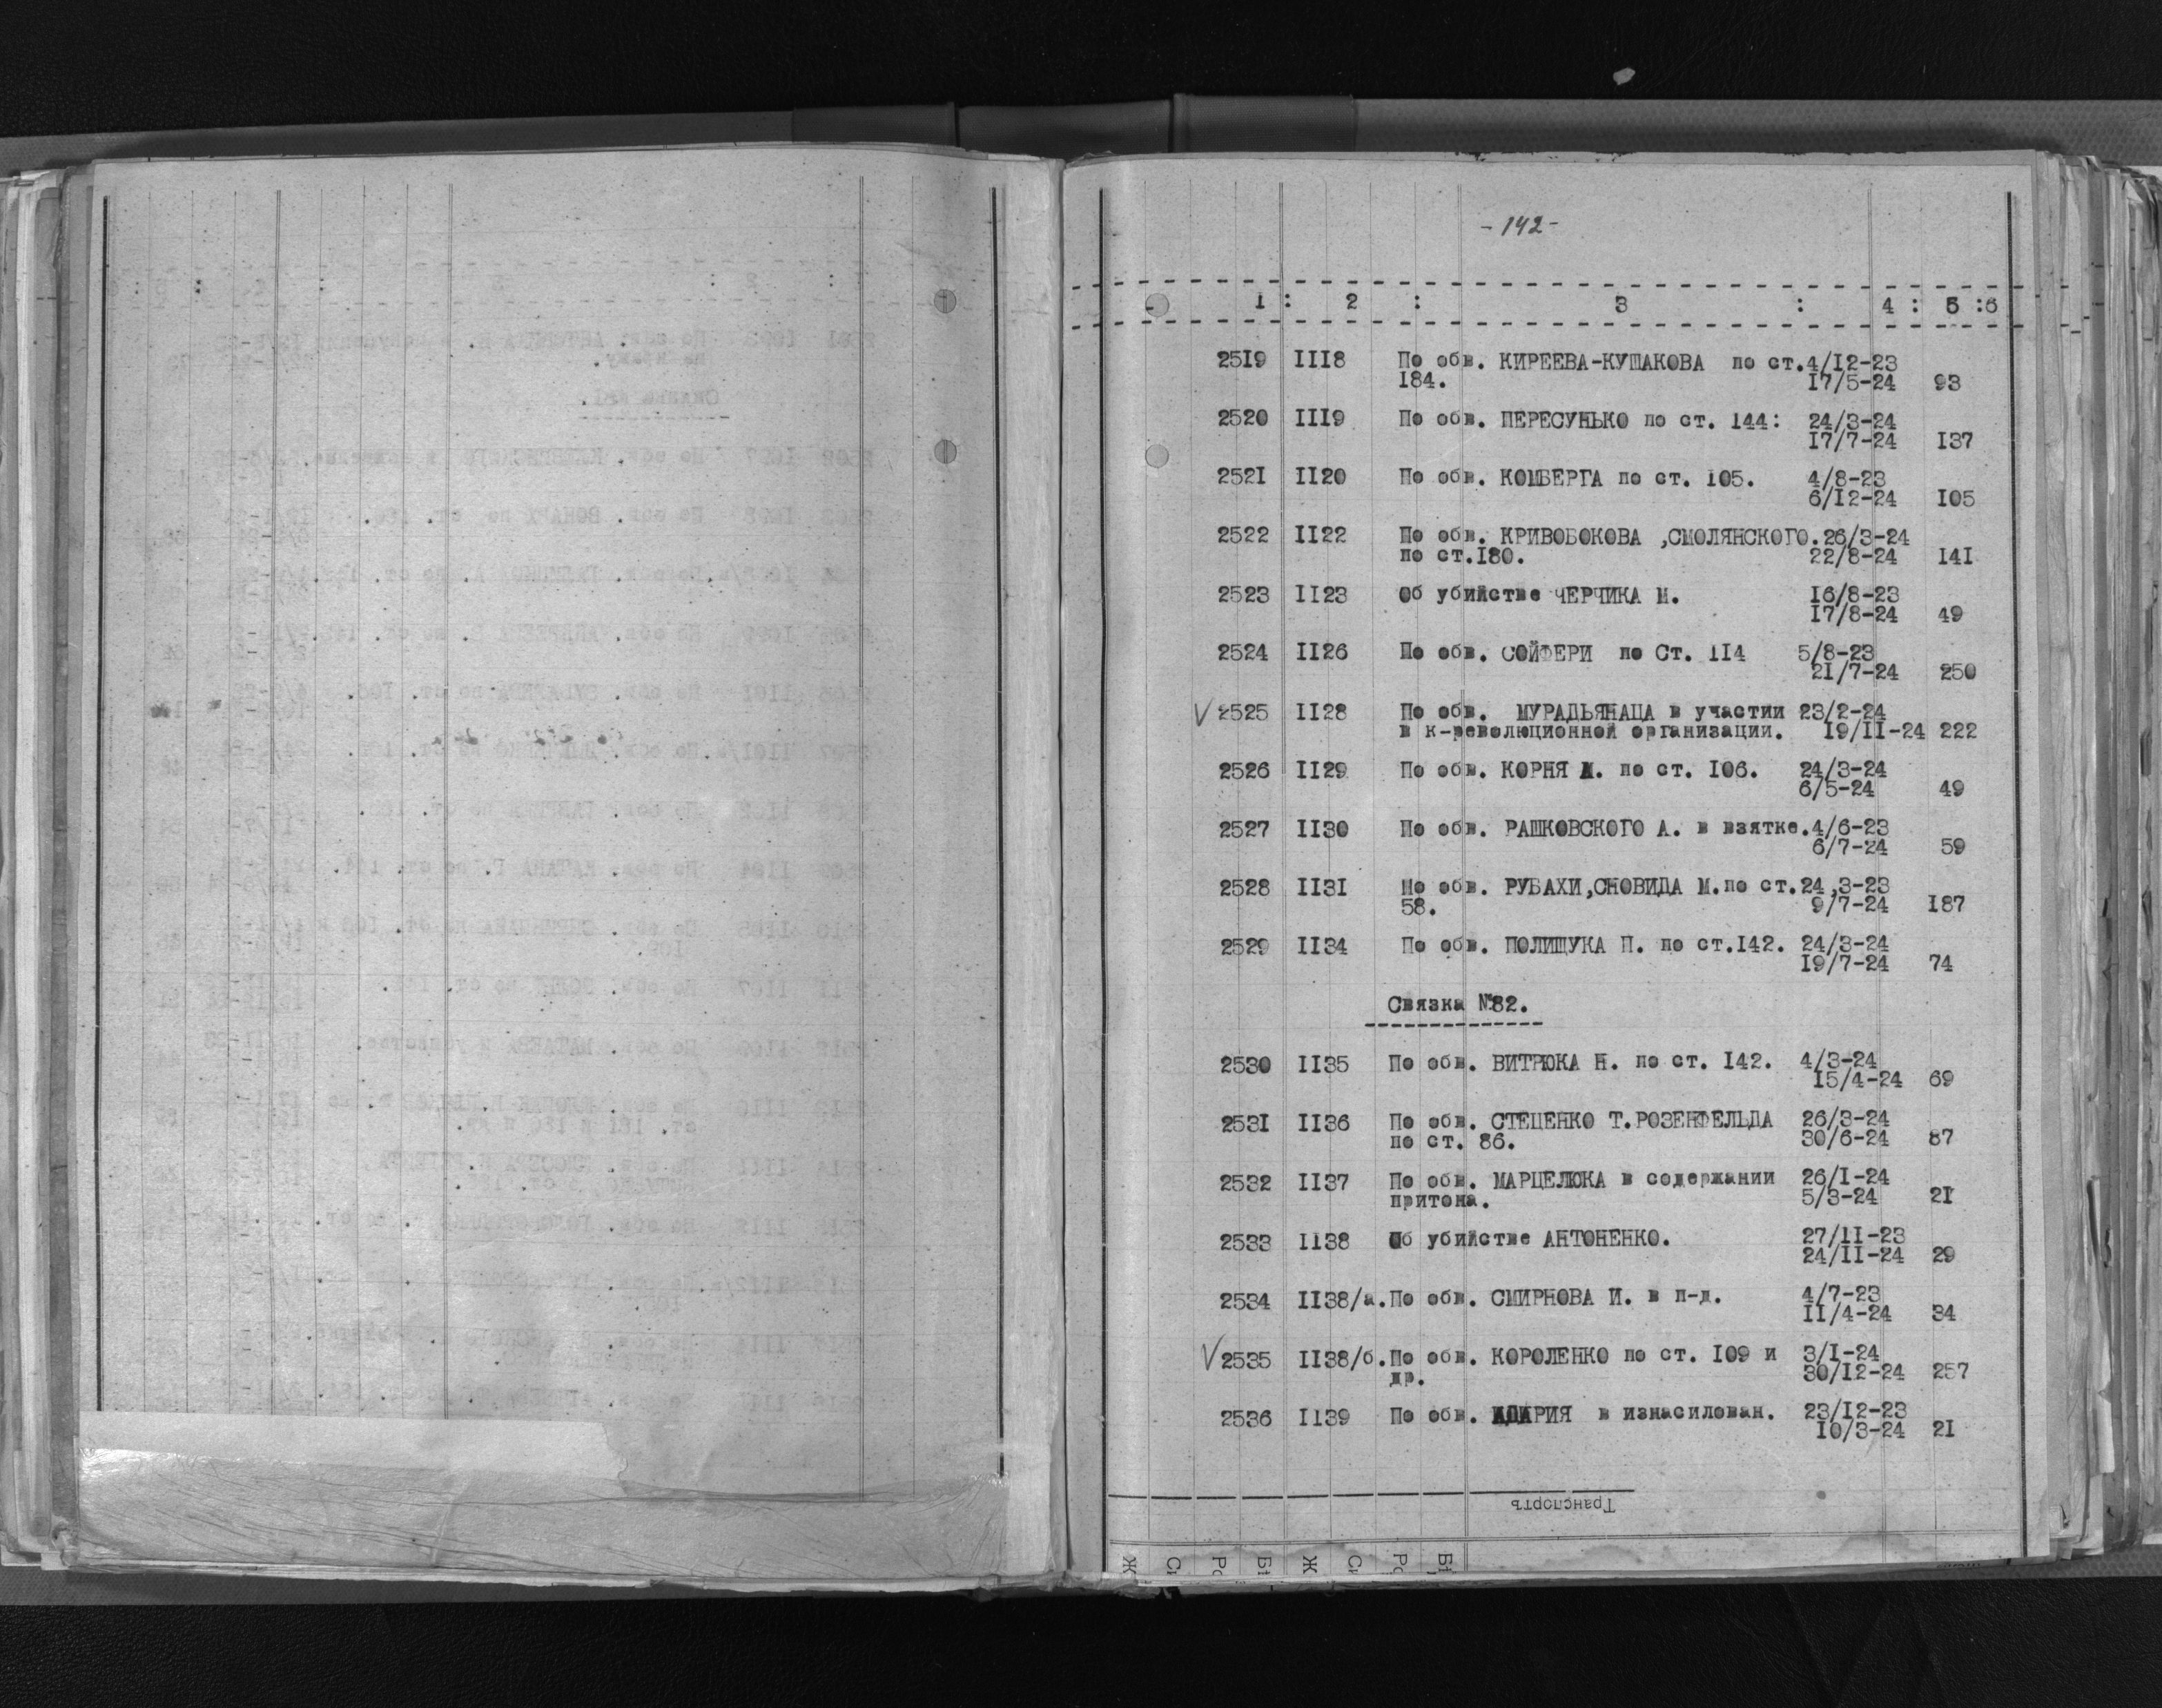 - 142 -
1 : 2 : 3 : 4 : 5 : 6
2519 III8 По обв. КИРЕЕВА-КУШАКОВА по ст. 4/I2-23
I84. I7/5-24 93
2520 III9 По обв. ПЕРЕСУНЬКО по ст. 144: 24/3-24
I7/7-24 I37
252I II20 По обв. КОМБЕРГА по ст. I05. 4/8-23
6/I2-24 I05
2522 II22 По обв. КРИВОБОКОВА ,СМОЛЯНСКОГО. 26/3-24
по ст.I80. 22/8-24 I4I
2523 II23 Об убийстве ЧЕРЧИКА М. I6/8-23
I7/8-24 49
2524 II26 По обв. СОЙФЕРИ по Ст. II4 5/8-23
2I/7-24 250
√ 2525 II28 По обв. МУРАДЬЯНАЦА в участии 23/2-24
в к-революционной организации. I9/II-24 222
2526 II29 По обв. КОРНЯ М. по ст. I06. 24/3-24
6/5-24 49
2527 II30 По обв. РАШКОВСКОГО А. в взятке. 4/6-23
6/7-24 59
2528 II3I По обв. РУБАХИ,СНОВИДА М.по ст. 24,3-23
58. 9/7-24 I87
2529 II34 По обв. ПОЛИЩУКА П. по ст.I42. 24/3-24
I9/7-24 74
Связка №82.
2530 II35 По обв. ВИТРЮКА Н. по ст. I42. 4/3-24
I5/4-24 69
253I II36 По обв. СТЕЦЕНКО Т.РОЗЕНФЕЛЬДА 26/3-24
по ст. 86. 30/6-24 87
2532 II37 По обв. МАРЦЕЛЮКА в содержании 26/I-24
притона. 5/3-24 2I
2533 II38 Об убийстве АНТОНЕНКО. 27/II-23
24/II-24 29
2534 II38/а. По обв. СМИРНОВА И. в п-д. 4/7-23
II/4-24 34
√ 2535 II38/б. По обв. КОРОЛЕНКО по ст. I09 и 3/I-24
др. 30/I2-24 257
2536 II39 По обв. в изнасилован. 23/I2-23
I0/3-24 2I
Транспортъ